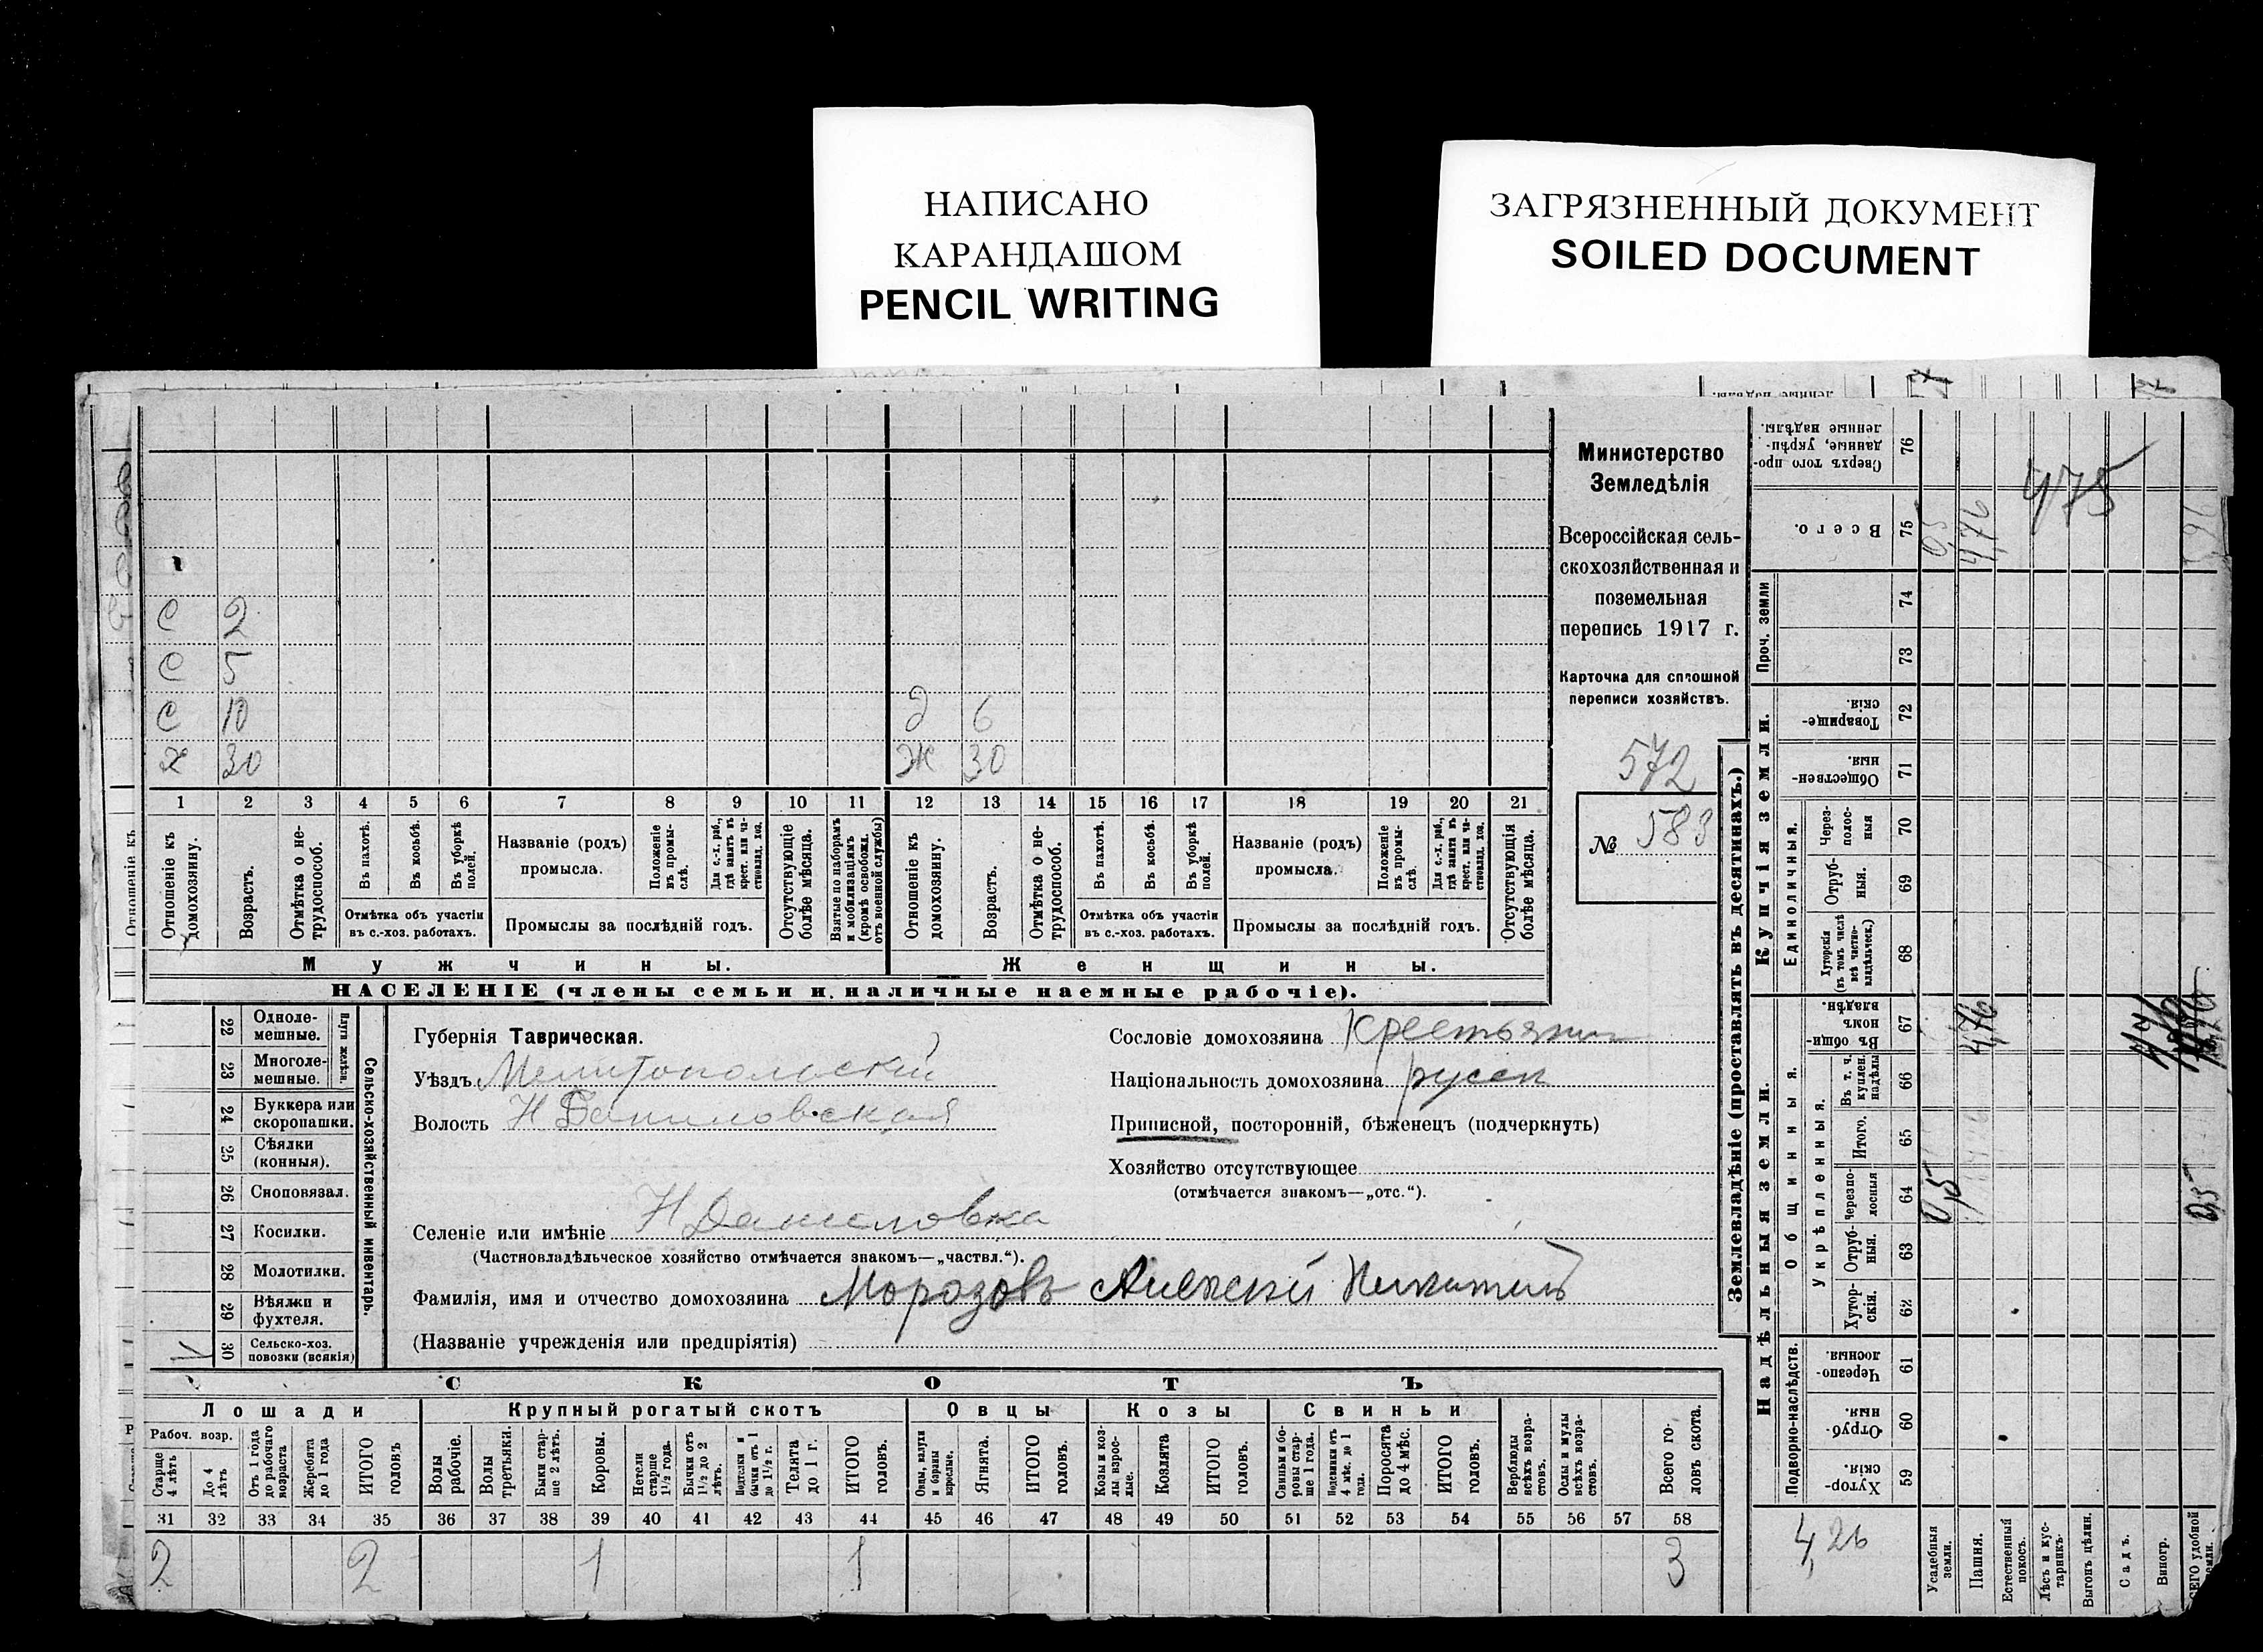 НАПИСАНО
КАРАНДАШОМ
PENCIL WRITING
ЗАГРЯЗНЕННЫЙ ДОКУМЕНТ
SOILED DOCUMENT
Министерство
Земледѣлія
Всероссійская сель-
скохозяйственная и
поземельная
перепись 1917 г.
Карточка для сплошной
переписи хозяйствъ.
572
№ 583
С 2
С 5
С 10 Д 6
Х 30 Ж 30
1 2 3 4 5 6 7 8 9 10 11 12 13 14 15 16 17 18 19 20 21
Отношеніе къ домохозяину.
Возрастъ.
Отмѣтка о не-трудоспособ.
Въ пахотѣ.
Въ косьбѣ.
Въ уборкѣ полей.
Отмѣтка объ участіи
въ с.-хоз. работахъ.
Названіе (родъ)
промысла.
Положеніе въ промы-слѣ.
Для с.-х. раб., гдѣ занятъ въ крест. или ча-стновлад. хоз.
Промыслы за послѣдній годъ.
Отсутствующіе болѣе мѣсяца.
Взятые по наборамъ и мобилизаціямъ (кромѣ освобожд. отъ военной службы)
Отношеніе къ домохозяину.
Возрастъ.
Отмѣтка о не-трудоспособ.
Въ пахотѣ.
Въ косьбѣ.
Въ уборкѣ полей.
Отмѣтка объ участіи
въ с.-хоз. работахъ.
Названіе (родъ)
промысла.
Положеніе въ промы-слѣ.
Для с.-х. раб., гдѣ занята въ крест. или ча-стновлад. хоз.
Промыслы за послѣдній годъ.
Отсутствующія болѣе мѣсяца.
Мужчины. Женщины.
НАСЕЛЕНІЕ (члены семьи и наличные наемные рабочіе).
22 Одноле-мешные.
23 Многоле-мешные.
Плуги желѣзн.
24 Буккера или скоропашки.
25 Сѣялки (конныя).
26 Сноповязал.
27 Косилки.
28 Молотилки.
29 Вѣялки и фухтеля.
30 Сельско-хоз. повозки (всякія)
Сельско-хозяйственный инвентарь.
Губернія Таврическая.
Уѣздъ Мелитопольскій
Волость Н Даниловская
Селеніе или имѣніе Н Даниловка
(Частновладѣльческое хозяйство отмѣчается знакомъ—„частвл.“).
Фамилія, имя и отчество домохозяина Морозовъ Алексей Никитичъ
(Названіе учрежденія или предпріятія)
Сословіе домохозяина Крестьянин
Національность домохозяина русск
Приписной, посторонній, бѣженецъ (подчеркнуть)
Хозяйство отсутствующее
(отмѣчается знакомъ—„отс.“).
СКОТЪ
Лошади Крупный рогатый скотъ Овцы Козы Свиньи
Рабоч. возр.
Старше 4 лѣтъ
До 4 лѣтъ
Отъ 1 года до рабочаго возраста
Жеребята до 1 года
ИТОГО головъ
Волы рабочіе.
Волы третьяки.
Быки стар-ше 2 лѣтъ.
Коровы.
Нетели старше 1½ года.
Бычки отъ 1½ до 2 лѣтъ.
Телята до 1 г.
ИТОГО головъ.
Ягнята.
ИТОГО головъ.
Козы и коз-лы взрос-лые.
Козлята
ИТОГО головъ.
Свиньи и бо-ровы стар-ше 1 года.
Подсвинки отъ 4 мѣс. до 1 года.
Поросята до 4 мѣс.
ИТОГО головъ.
Верблюды всѣхъ возра-стовъ.
Ослы и мулы всѣхъ возра-стовъ.
Всего го-ловъ скота.
31 32 33 34 35 36 37 38 39 40 41 42 43 44 45 46 47 48 49 50 51 52 53 54 55 56 57 58
2 2 1 1 3
Землевладѣніе (проставлять въ десятинахъ.)
Купчія земли.
Надѣльныя земли.
Сверхъ того про-данные, укрѣп-ленные надѣлы. 76
Всего. 75
Проч. земли 74 73
Товарище-скія. 72
Обществен-ныя. 71
Единоличныя.
Через-полос-ныя 70
Отруб-ныя. 69
Хуторскія (въ томъ числѣ всѣ частно-владѣльческ.) 68
Общинныя.
Въ общин-номъ владѣн. 67
Укрѣпленныя.
Въ т. ч. куплен. надѣлы 66
Итого. 65
Черезпо-лосныя 64
Отруб-ныя. 63
Хутор-скія. 62
Подворно-наслѣдств.
Черезпо-лосныя. 61
Отруб-ныя. 60
Хутор-скія. 59
475
4,76
4,76
4,26
Усадебныя земли.
Пашня.
Естественный покосъ.
Лѣсъ и кус-тарникъ.
Выгонъ цѣлин.
Садъ.
Виногр.